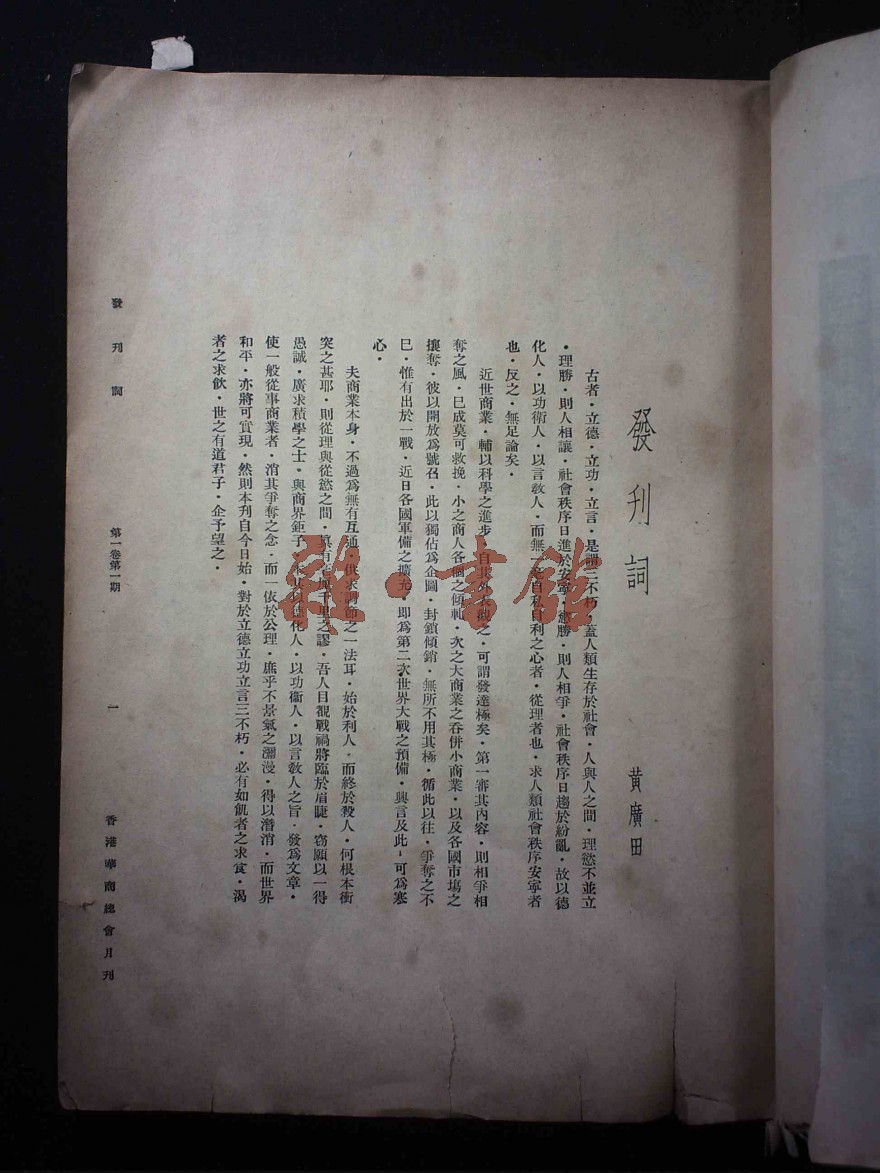 發刊詞
黃廣田
古者・立德・立功・立言・是謂三不朽・蓋人類生存於社會・人與人之間・理慾不並立
・理勝・則人相讓・社會秩序日進於安寧・慾勝・則人相爭・社會秩序日趨於紛亂・故以德
化人・以功衛人・以言敎人・而無一己自私自利之心者・從理者也・求人類社會秩序安寧者
也・反之・無足論矣・
近世商業・輔以科學之進步・自其外表觀之・可謂發達極矣・第一審其內容・則相爭相
奪之風・已成莫可救挽・小之商人各個之傾軋・次之大商業之吞併小商業・以及各國市塲之
攘奪・彼以開放爲號召・此以獨佔爲企圖・封鎖傾銷・無所不用其極・循此以往・爭奪之不
已・惟有出於一戰・近日各國軍備之擴充・卽爲第二次世界大戰之預備・興言及此・可爲寒
心・
夫商業本身・不過爲無有互通・供求調節之一法耳・始於利人・而終於殺人・何根本衝
突之甚耶・則從理與從慾之間・眞有千里之謬・吾人目覩戰禍將臨於眉睫・窃願以一得
愚誠・廣求積學之士・與商界鉅子・本其以德化人・以功衞人・以言敎人之旨・發爲文章・
使一般從事商業者・消其爭奪之念・而一依於公理・庶乎不景氣之瀰漫・得以潛消・而世界
和平・亦將可實現・然則本刊自今日始・對於立德立功立言三不朽・必有如飢者之求食・渴
者之求飲・世之有道君子・企予望之・
發刊詞
第一卷第一期
一
香港華商總會月刊
雜・書館